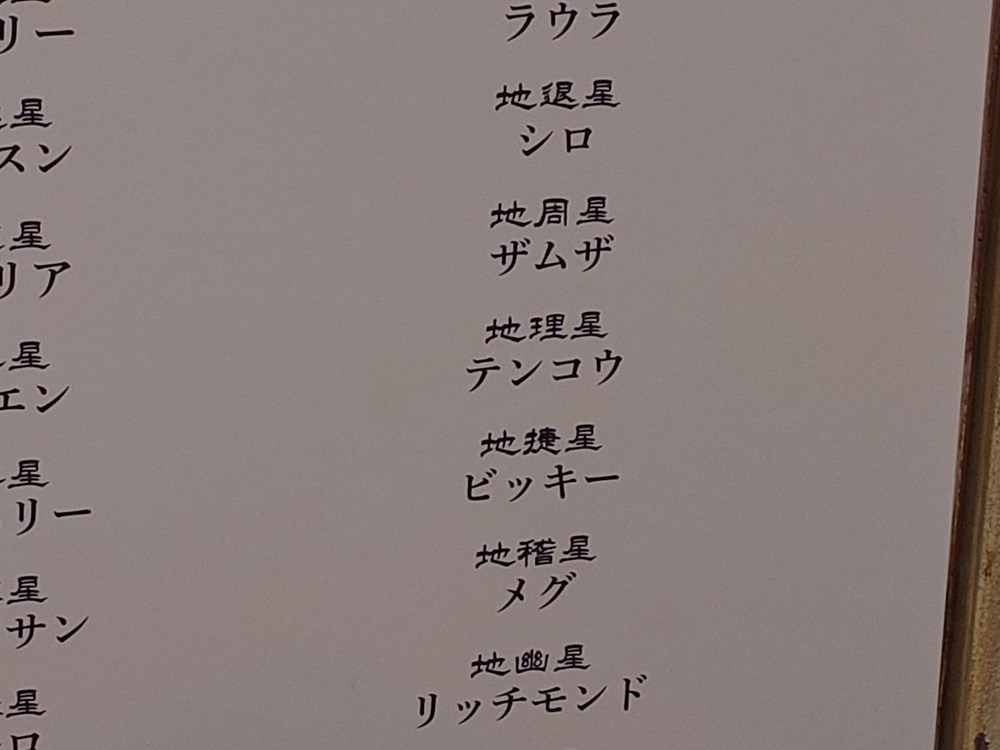 リー
星
スン
星
リア
星
エン
星
リー
星
サン
星
ロ
ラウラ
地退星
シロ
地周星
ザムザ
地理星
テンコウ
地捷星
ビッキー
地稽星
メグ
地幽星
リッチモンド